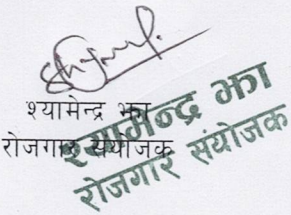 श्यामेन्द्र झा
रोजगार संयोजक
श्यामेन्द्र झा
रोजगार संयोजक